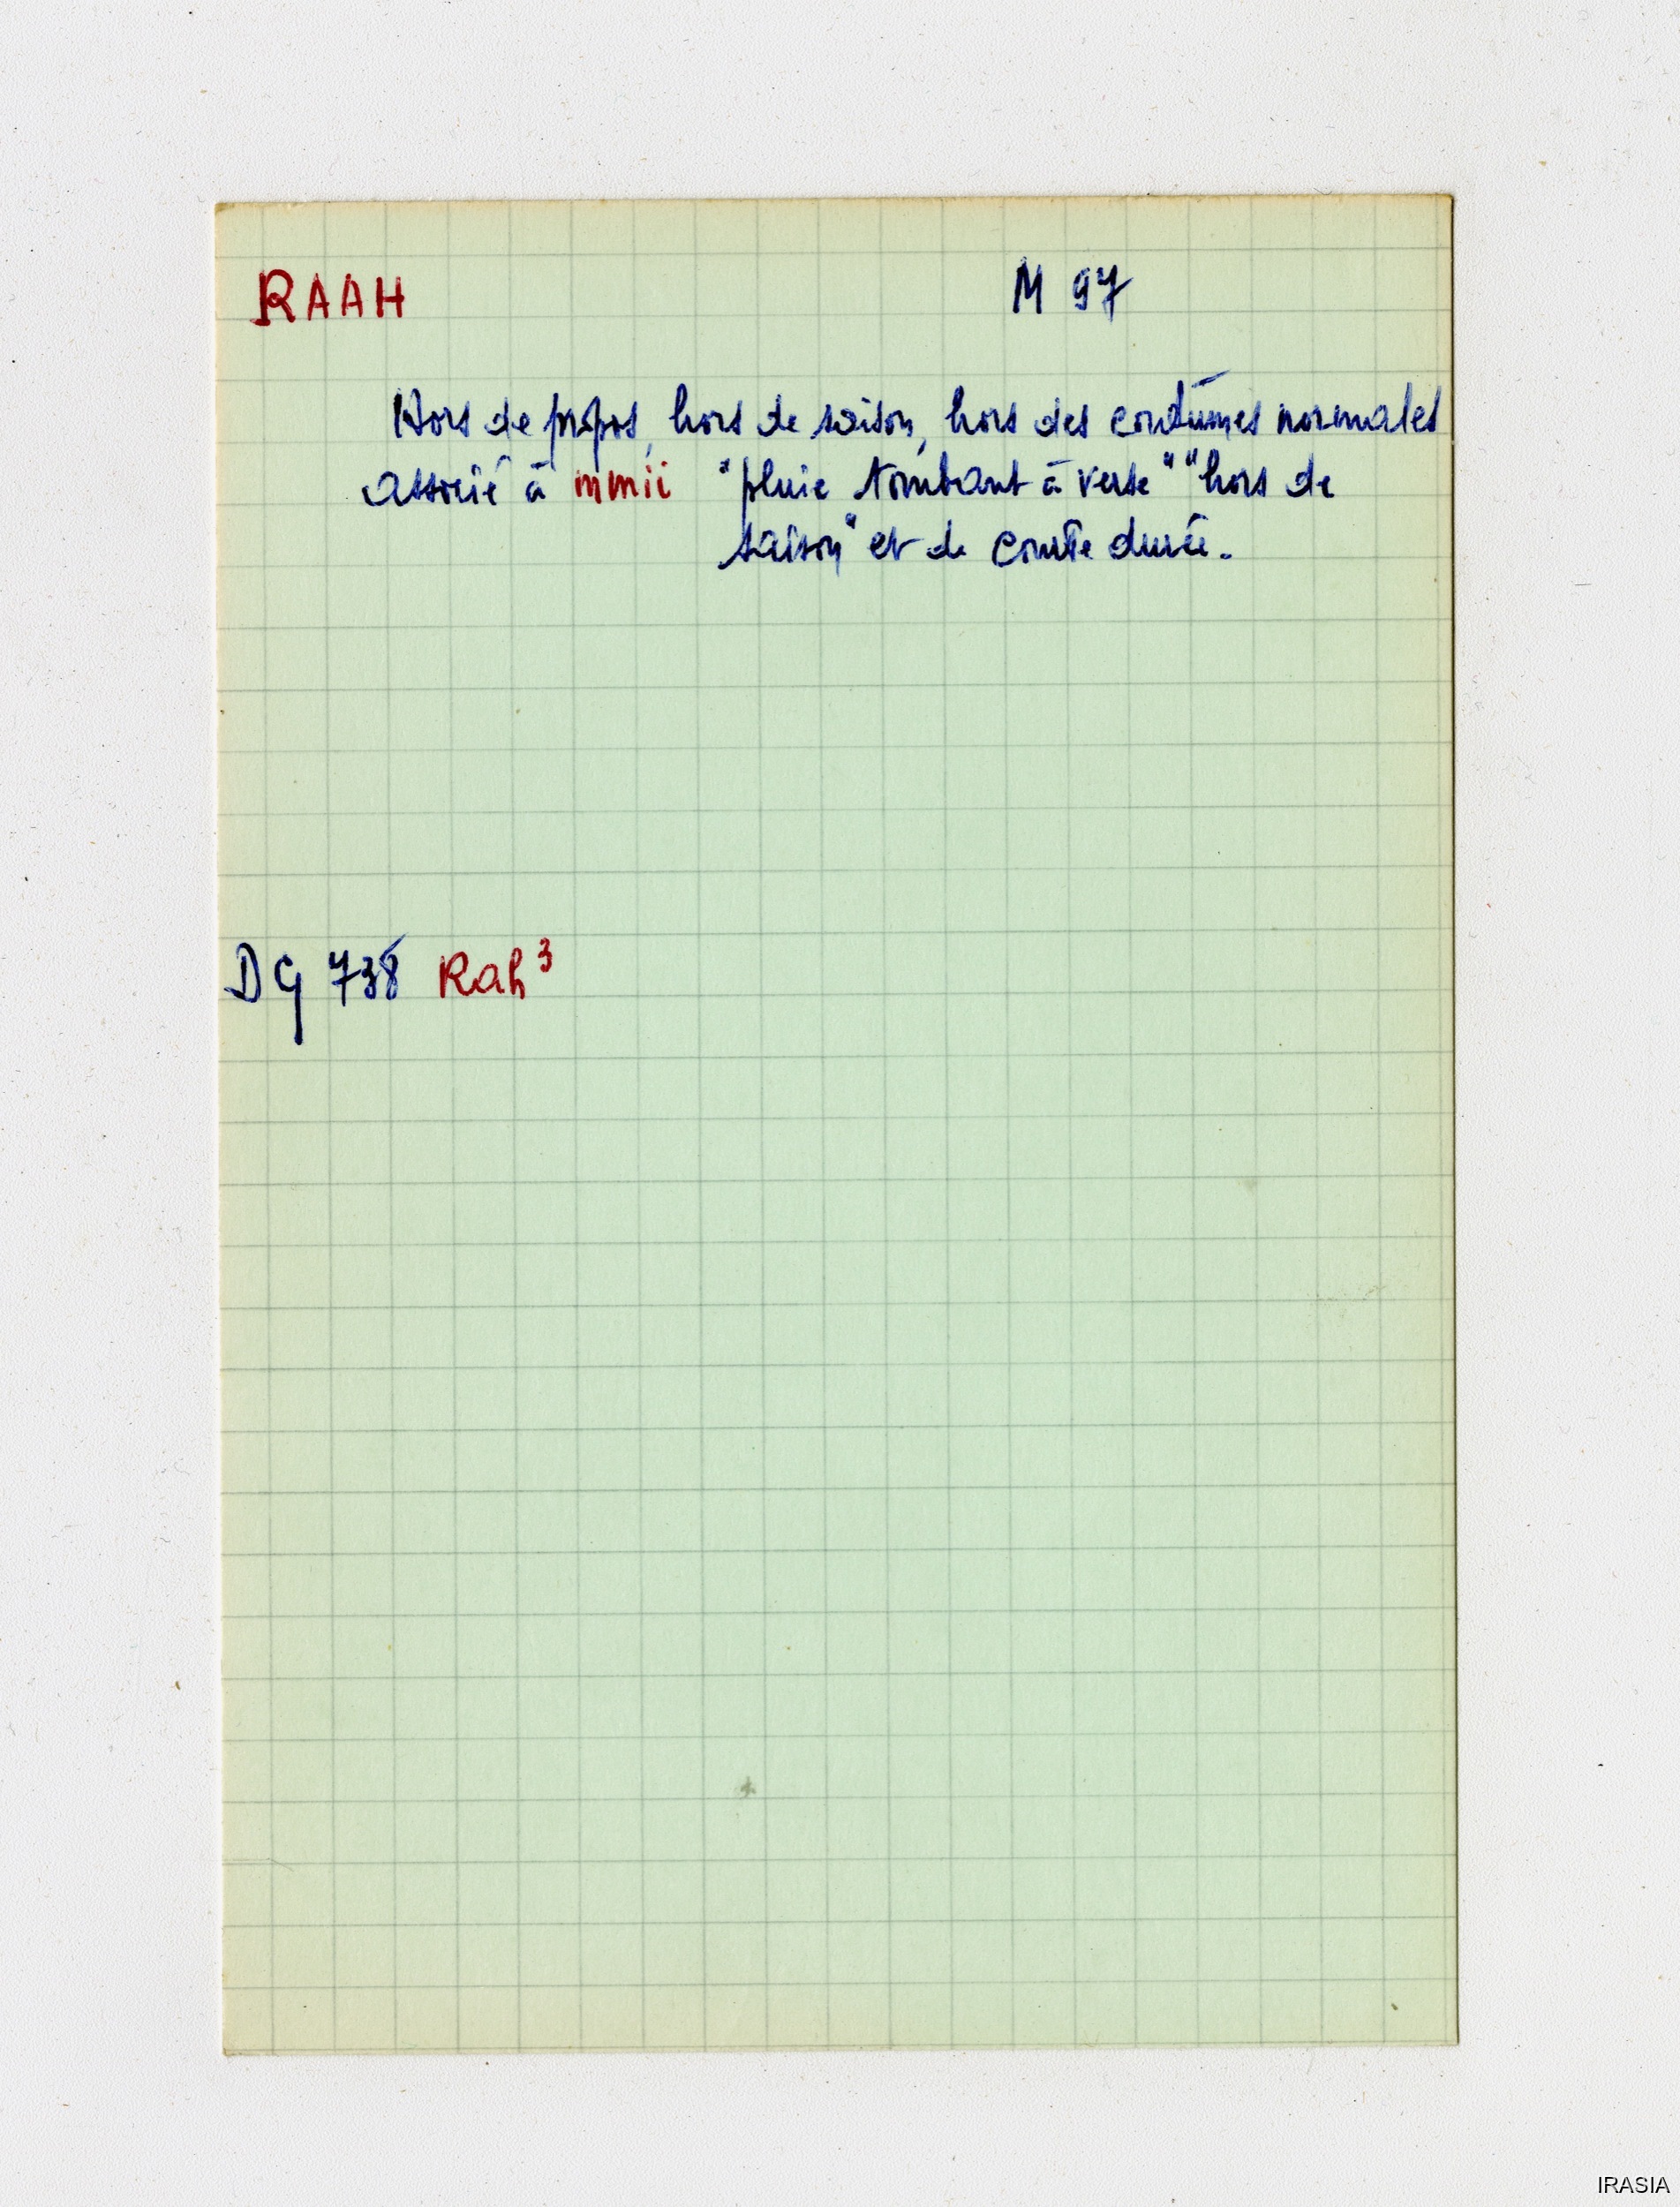 RAAH M 97
Hors de propos, hors de saison, hors des coutumes normales
associé à mmii "pluie tombant à verse" "hors de
saison" et de courte durée.
DG 738 Rah³
IRASIA